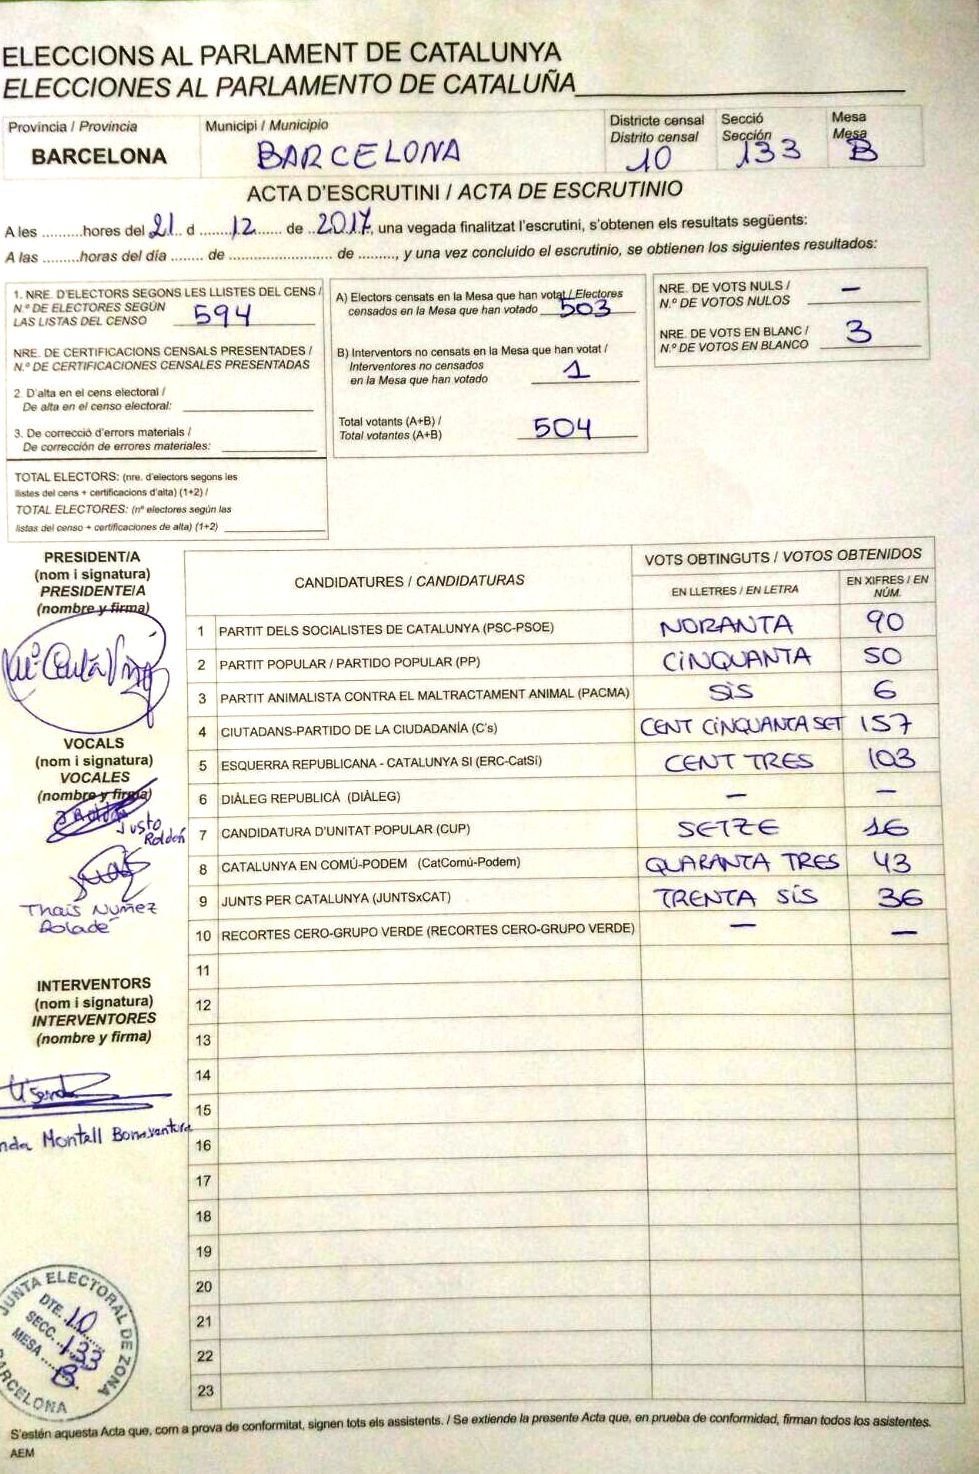 ELECCIONS AL PARLAMENT DE CATALUNYA
ELECCIONES AL PARLAMENTO DE CATALUÑA
Província / Provincia
BARCELONA
Municipi / Municipio
BARCELONA
Districte censal
Distrito censal
10
Secció
Sección
133
Mesa
Mesa
B
ACTA D'ESCRUTINI / ACTA DE ESCRUTINIO
A les ..........hores del 21 d ........12....... de ..2017, una vegada finalitzat l'escrutini, s'obtenen els resultats següents:
A las .........horas del día ........ de ............................ de ........., y una vez concluido el escrutinio, se obtienen los siguientes resultados:
1. NRE. D'ELECTORS SEGONS LES LLISTES DEL CENS /
N.º DE ELECTORES SEGÚN
LAS LISTAS DEL CENSO 594
NRE. DE CERTIFICACIONS CENSALS PRESENTADES /
N.º DE CERTIFICACIONES CENSALES PRESENTADAS
2. D'alta en el cens electoral /
De alta en el censo electoral:
3. De correcció d'errors materials /
De corrección de errores materiales:
TOTAL ELECTORS: (nre. d'electors segons les
llistes del cens + certificacions d'alta) (1+2) /
TOTAL ELECTORES: (nº electores según las
listas del censo + certificaciones de alta) (1+2)
A) Electors censats en la Mesa que han votat / Electores
censados en la Mesa que han votado 503
B) Interventors no censats en la Mesa que han votat /
Interventores no censados
en la Mesa que han votado 1
Total votants (A+B) /
Total votantes (A+B) 504
NRE. DE VOTS NULS /
N.º DE VOTOS NULOS —
NRE. DE VOTS EN BLANC /
N.º DE VOTOS EN BLANCO 3
PRESIDENT/A
(nom i signatura)
PRESIDENTE/A
(nombre y firma)
VOCALS
(nom i signatura)
VOCALES
(nombre y firma)
Justo
Roldán
Thais Nuñez
INTERVENTORS
(nom i signatura)
INTERVENTORES
(nombre y firma)
Montell Bonaventura
CANDIDATURES / CANDIDATURAS
VOTS OBTINGUTS / VOTOS OBTENIDOS
EN LLETRES / EN LETRA
EN XIFRES / EN
NÚM.
1 PARTIT DELS SOCIALISTES DE CATALUNYA (PSC-PSOE) NORANTA 90
2 PARTIT POPULAR / PARTIDO POPULAR (PP) CINQUANTA 50
3 PARTIT ANIMALISTA CONTRA EL MALTRACTAMENT ANIMAL (PACMA) SIS 6
4 CIUTADANS-PARTIDO DE LA CIUDADANÍA (C's) CENT CINQUANTA SET 157
5 ESQUERRA REPUBLICANA - CATALUNYA SI (ERC-CatSí) CENT TRES 103
6 DIÀLEG REPUBLICÀ (DIÀLEG) — —
7 CANDIDATURA D'UNITAT POPULAR (CUP) SETZE 16
8 CATALUNYA EN COMÚ-PODEM (CatComú-Podem) QUARANTA TRES 43
9 JUNTS PER CATALUNYA (JUNTSxCAT) TRENTA SIS 36
10 RECORTES CERO-GRUPO VERDE (RECORTES CERO-GRUPO VERDE) — —
11
12
13
14
15
16
17
18
19
20
21
22
23
JUNTA ELECTORAL DE ZONA
DTE. 10
SECC. 133
MESA B
BARCELONA
S'estén aquesta Acta que, com a prova de conformitat, signen tots els assistents. / Se extiende la presente Acta que, en prueba de conformidad, firman todos los asistentes.
AEM